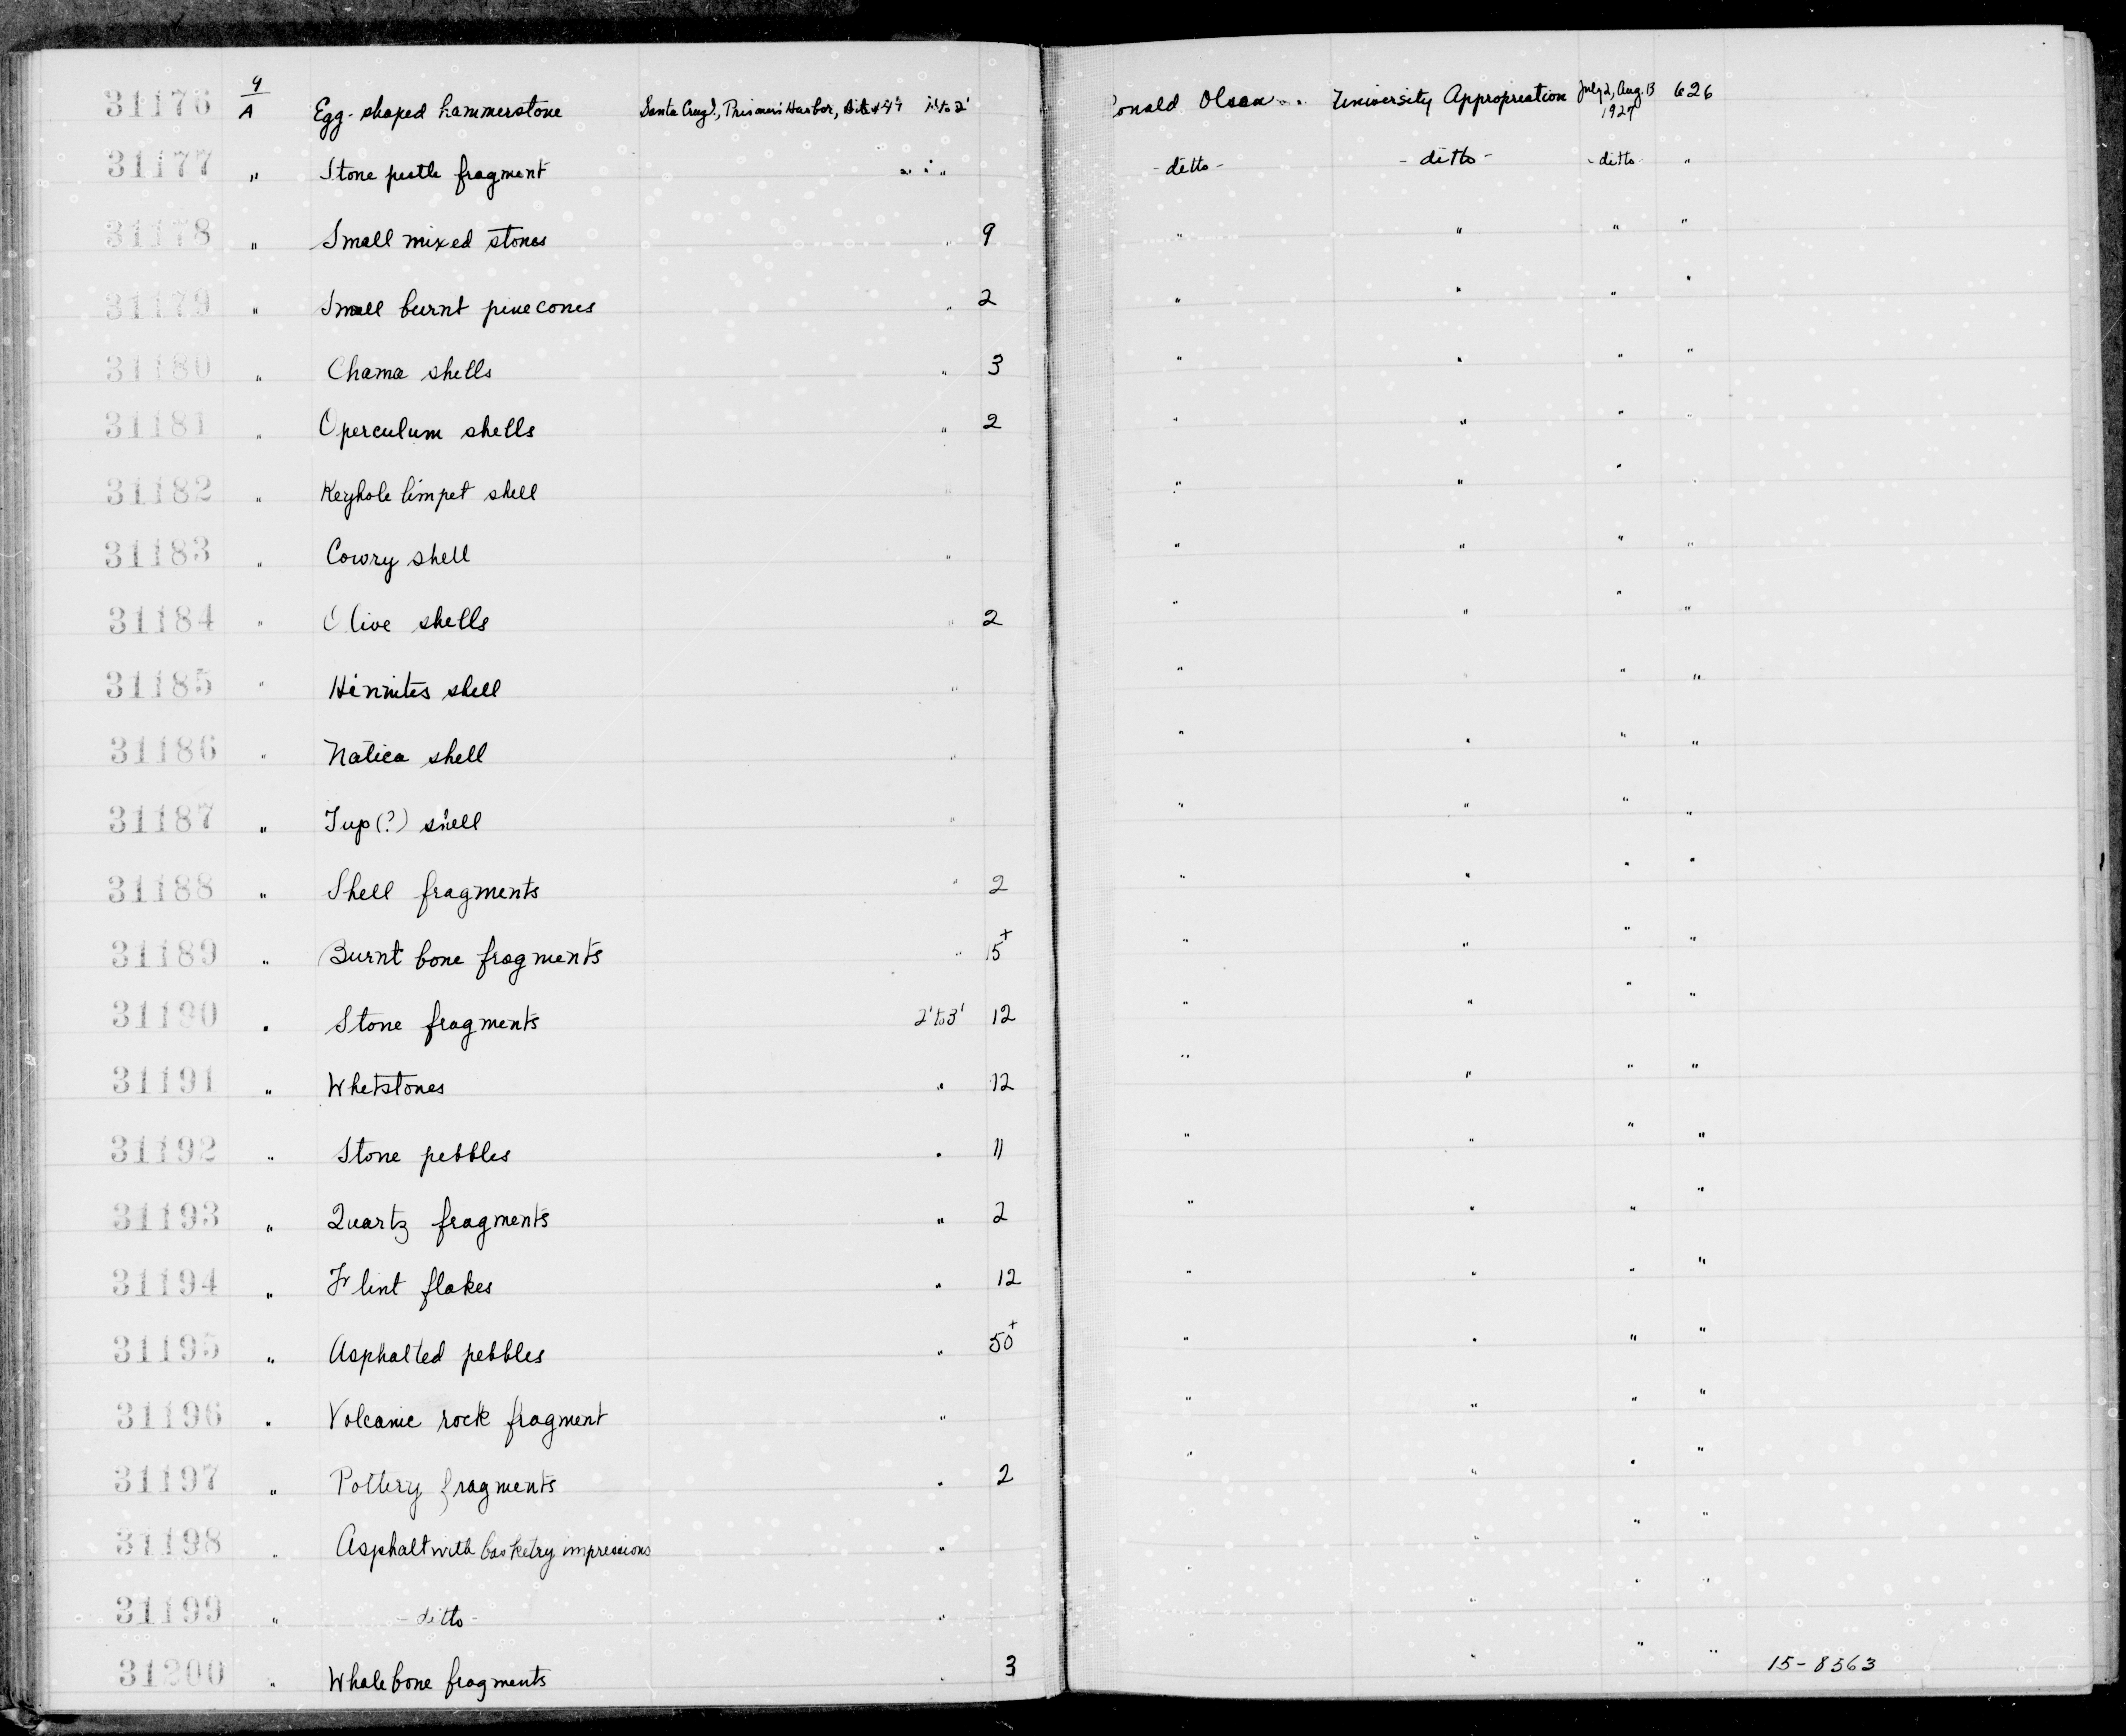 31176 4/A Egg-shaped hammerstone Santa Cruz I., Prisoners Harbor, Site #47 1' to 2' Ronald Olson University Appropriation July 2, Aug. 13 1927 626
31177 " Stone pestle fragment " " " -ditto- -ditto- -ditto- "
31178 " Small mixed stones " 9 " " " "
31179 " Small burnt pinecones " 2 " " " "
31180 " Chama shells " 3 " " " "
31181 " Operculum shells " 2 " " " "
31182 " Keyhole limpet shell " " " " "
31183 " Cowry shell " " " " "
31184 " Olive shells " 2 " " " "
31185 " Hinnites shell " " " " "
31186 " Natica shell " " " " "
31187 " Tup(?) shell " " " " "
31188 " Shell fragments " 2 " " " "
31189 " Burnt bone fragments " 15+ " " " "
31190 " Stone fragments 2' to 3' 12 " " " "
31191 " Whetstones " 12 " " " "
31192 " Stone pebbles " 11 " " " "
31193 " Quartz fragments " 2 " " " "
31194 " Flint flakes " 12 " " " "
31195 " Asphalted pebbles " 50+ " " " "
31196 " Volcanic rock fragment " " " " "
31197 " Pottery fragments " 2 " " " "
31198 " Asphalt with basketry impressions " " " "
31199 " -ditto- " " " "
31200 " Whalebone fragments " 3 " " " " 15-8563